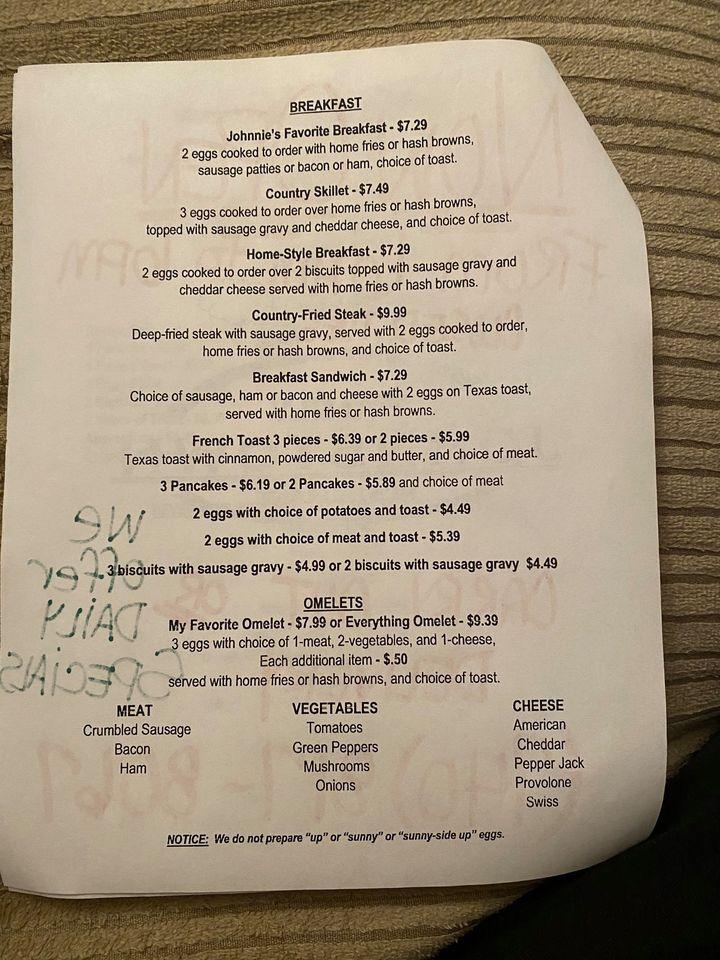 BREAKFAST
Johnnie's Favorite Breakfast - $7.29
2 eggs cooked to order with home fries or hash browns,
sausage patties or bacon or ham, choice of toast.
Country Skillet - $7.49
3 eggs cooked to order over home fries or hash browns,
topped with sausage gravy and cheddar cheese, and choice of toast.
Home-Style Breakfast - $7.29
2 eggs cooked to order over 2 biscuits topped with sausage gravy and
cheddar cheese served with home fries or hash browns.
Country-Fried Steak - $9.99
Deep-fried steak with sausage gravy, served with 2 eggs cooked to order,
home fries or hash browns, and choice of toast.
Breakfast Sandwich - $7.29
Choice of sausage, ham or bacon and cheese with 2 eggs on Texas toast,
served with home fries or hash browns.
French Toast 3 pieces - $6.39 or 2 pieces - $5.99
Texas toast with cinnamon, powdered sugar and butter, and choice of meat.
3 Pancakes - $6.19 or 2 Pancakes - $5.89 and choice of meat
2 eggs with choice of potatoes and toast - $4.49
2 eggs with choice of meat and toast - $5.39
3 biscuits with sausage gravy - $4.99 or 2 biscuits with sausage gravy $4.49
We
offer
DAILY
SPECIALS
OMELETS
My Favorite Omelet - $7.99 or Everything Omelet - $9.39
3 eggs with choice of 1-meat, 2-vegetables, and 1-cheese,
Each additional item - $.50
served with home fries or hash browns, and choice of toast.
MEAT
Crumbled Sausage
Bacon
Ham
VEGETABLES
Tomatoes
Green Peppers
Mushrooms
Onions
CHEESE
American
Cheddar
Pepper Jack
Provolone
Swiss
NOTICE: We do not prepare "up" or "sunny" or "sunny-side up" eggs.